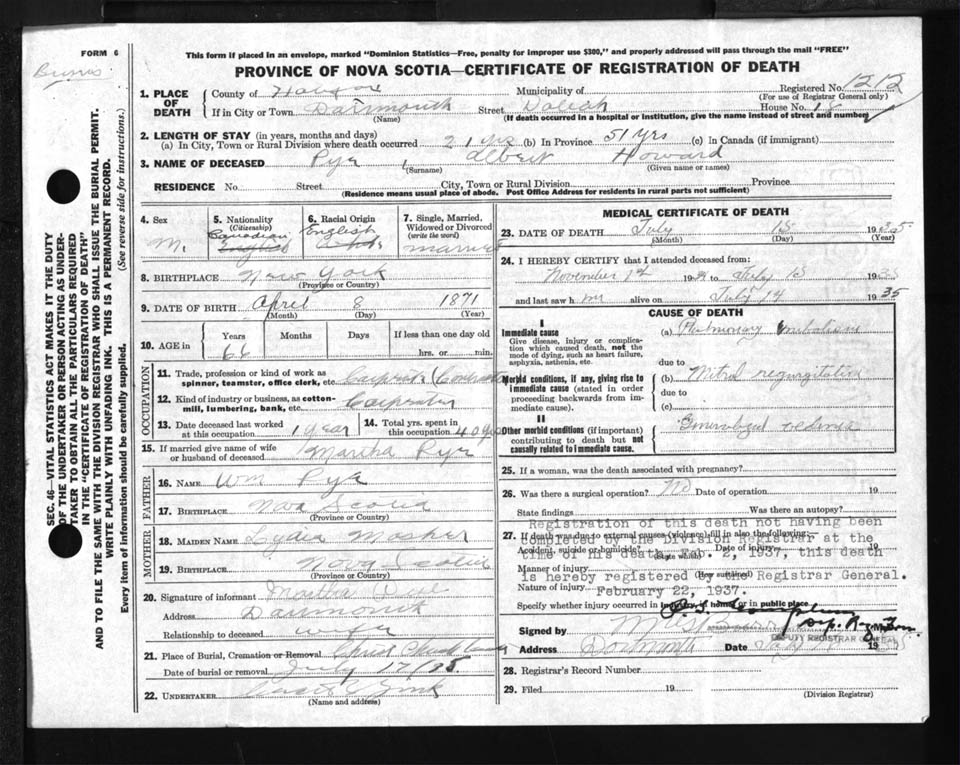 FORM 6
Burns
This form if placed in an envelope, marked "Dominion Statistics—Free, penalty for improper use $300," and properly addressed will pass through the mail "FREE"
PROVINCE OF NOVA SCOTIA—CERTIFICATE OF REGISTRATION OF DEATH
SEC. 46—VITAL STATISTICS ACT MAKES IT THE DUTY
OF THE UNDERTAKER OR PERSON ACTING AS UNDER-
TAKER TO OBTAIN ALL THE PARTICULARS REQUIRED
IN THE "CERTIFICATE OF REGISTRATION OF DEATH"
AND TO FILE THE SAME WITH THE DIVISION REGISTRAR WHO SHALL ISSUE THE BURIAL PERMIT.
WRITE PLAINLY WITH UNFADING INK. THIS IS A PERMANENT RECORD.
Every item of information should be carefully supplied. (See reverse side for instructions.)
1. PLACE OF DEATH
County of Halifax Municipality of Registered No. 1212
(For use of Registrar General only)
If in City or Town Dartmouth Street House No. 18
(Name) (If death occurred in a hospital or institution, give the name instead of street and number)
2. LENGTH OF STAY (in years, months and days)
(a) In City, Town or Rural Division where death occurred 21 yrs (b) In Province 51 yrs (c) In Canada (if immigrant)
3. NAME OF DECEASED Pye, Albert Howard
(Surname) (Given name or names)
RESIDENCE No. Street City, Town or Rural Division Province
(Residence means usual place of abode. Post Office Address for residents in rural parts not sufficient)
4. Sex
M.
5. Nationality
(Citizenship)
Canadian
English
6. Racial Origin
English
7. Single, Married,
Widowed or Divorced
(write the word)
married
8. BIRTHPLACE New York
(Province or Country)
9. DATE OF BIRTH April 8 1871
(Month) (Day) (Year)
10. AGE in
Years Months Days If less than one day old
hrs. or min.
OCCUPATION
11. Trade, profession or kind of work as
spinner, teamster, office clerk, etc.
12. Kind of industry or business, as cotton-
mill, lumbering, bank, etc. Carpenter
13. Date deceased last worked
at this occupation 1 year
14. Total yrs. spent in
this occupation 40 yrs
15. If married give name of wife
or husband of deceased Martha Pye
FATHER
16. NAME Wm Pye
17. BIRTHPLACE Nova Scotia
(Province or Country)
MOTHER
18. MAIDEN NAME Lydia Mosher
19. BIRTHPLACE Nova Scotia
(Province or Country)
20. Signature of informant Martha Pye
Address Dartmouth
Relationship to deceased wife
21. Place of Burial, Cremation or Removal Christ Church
Date of burial or removal July 17/35
22. UNDERTAKER
(Name and address)
MEDICAL CERTIFICATE OF DEATH
23. DATE OF DEATH July 15 1935
(Month) (Day) (Year)
24. I HEREBY CERTIFY that I attended deceased from:
November 1st 193 to July 15 1935
and last saw him alive on July 14 1935
CAUSE OF DEATH
I
Immediate cause
Give disease, injury or complica-
tion which caused death, not the
mode of dying, such as heart failure,
asphyxia, asthenia, etc.
(a) Pulmonary embolism
due to
Morbid conditions, if any, giving rise to
immediate cause (stated in order
proceeding backwards from im-
mediate cause).
(b) Mitral regurgitation
due to
(c)
II
Other morbid conditions (if important)
contributing to death but not
causally related to immediate cause.
Generalized oedema
25. If a woman, was the death associated with pregnancy?
26. Was there a surgical operation? No Date of operation 19
State findings Was there an autopsy?
27. If death was due to external causes (violence) fill in also the following:
Accident, suicide or homicide? Date of injury 19
Manner of injury
Nature of injury
Specify whether injury occurred in industry, in home or in public place
Registration of this death not having been
completed by the Division Registrar at the
time of his death, Feb. 2, 1937, this death
is hereby registered by the Registrar General.
February 22, 1937.
Signed by
DEPUTY REGISTRAR GENERAL
Address Dartmouth Date 19
28. Registrar's Record Number
29. Filed 19
(Division Registrar)